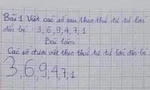 Bài 1 Viết các số sau theo thứ tự từ lớn
đến bé. 3, 6, 9, 4, 7, 1
Bài làm
Các số được viết theo thứ tự từ lớn đến bé.
3, 6, 9, 4, 7, 1